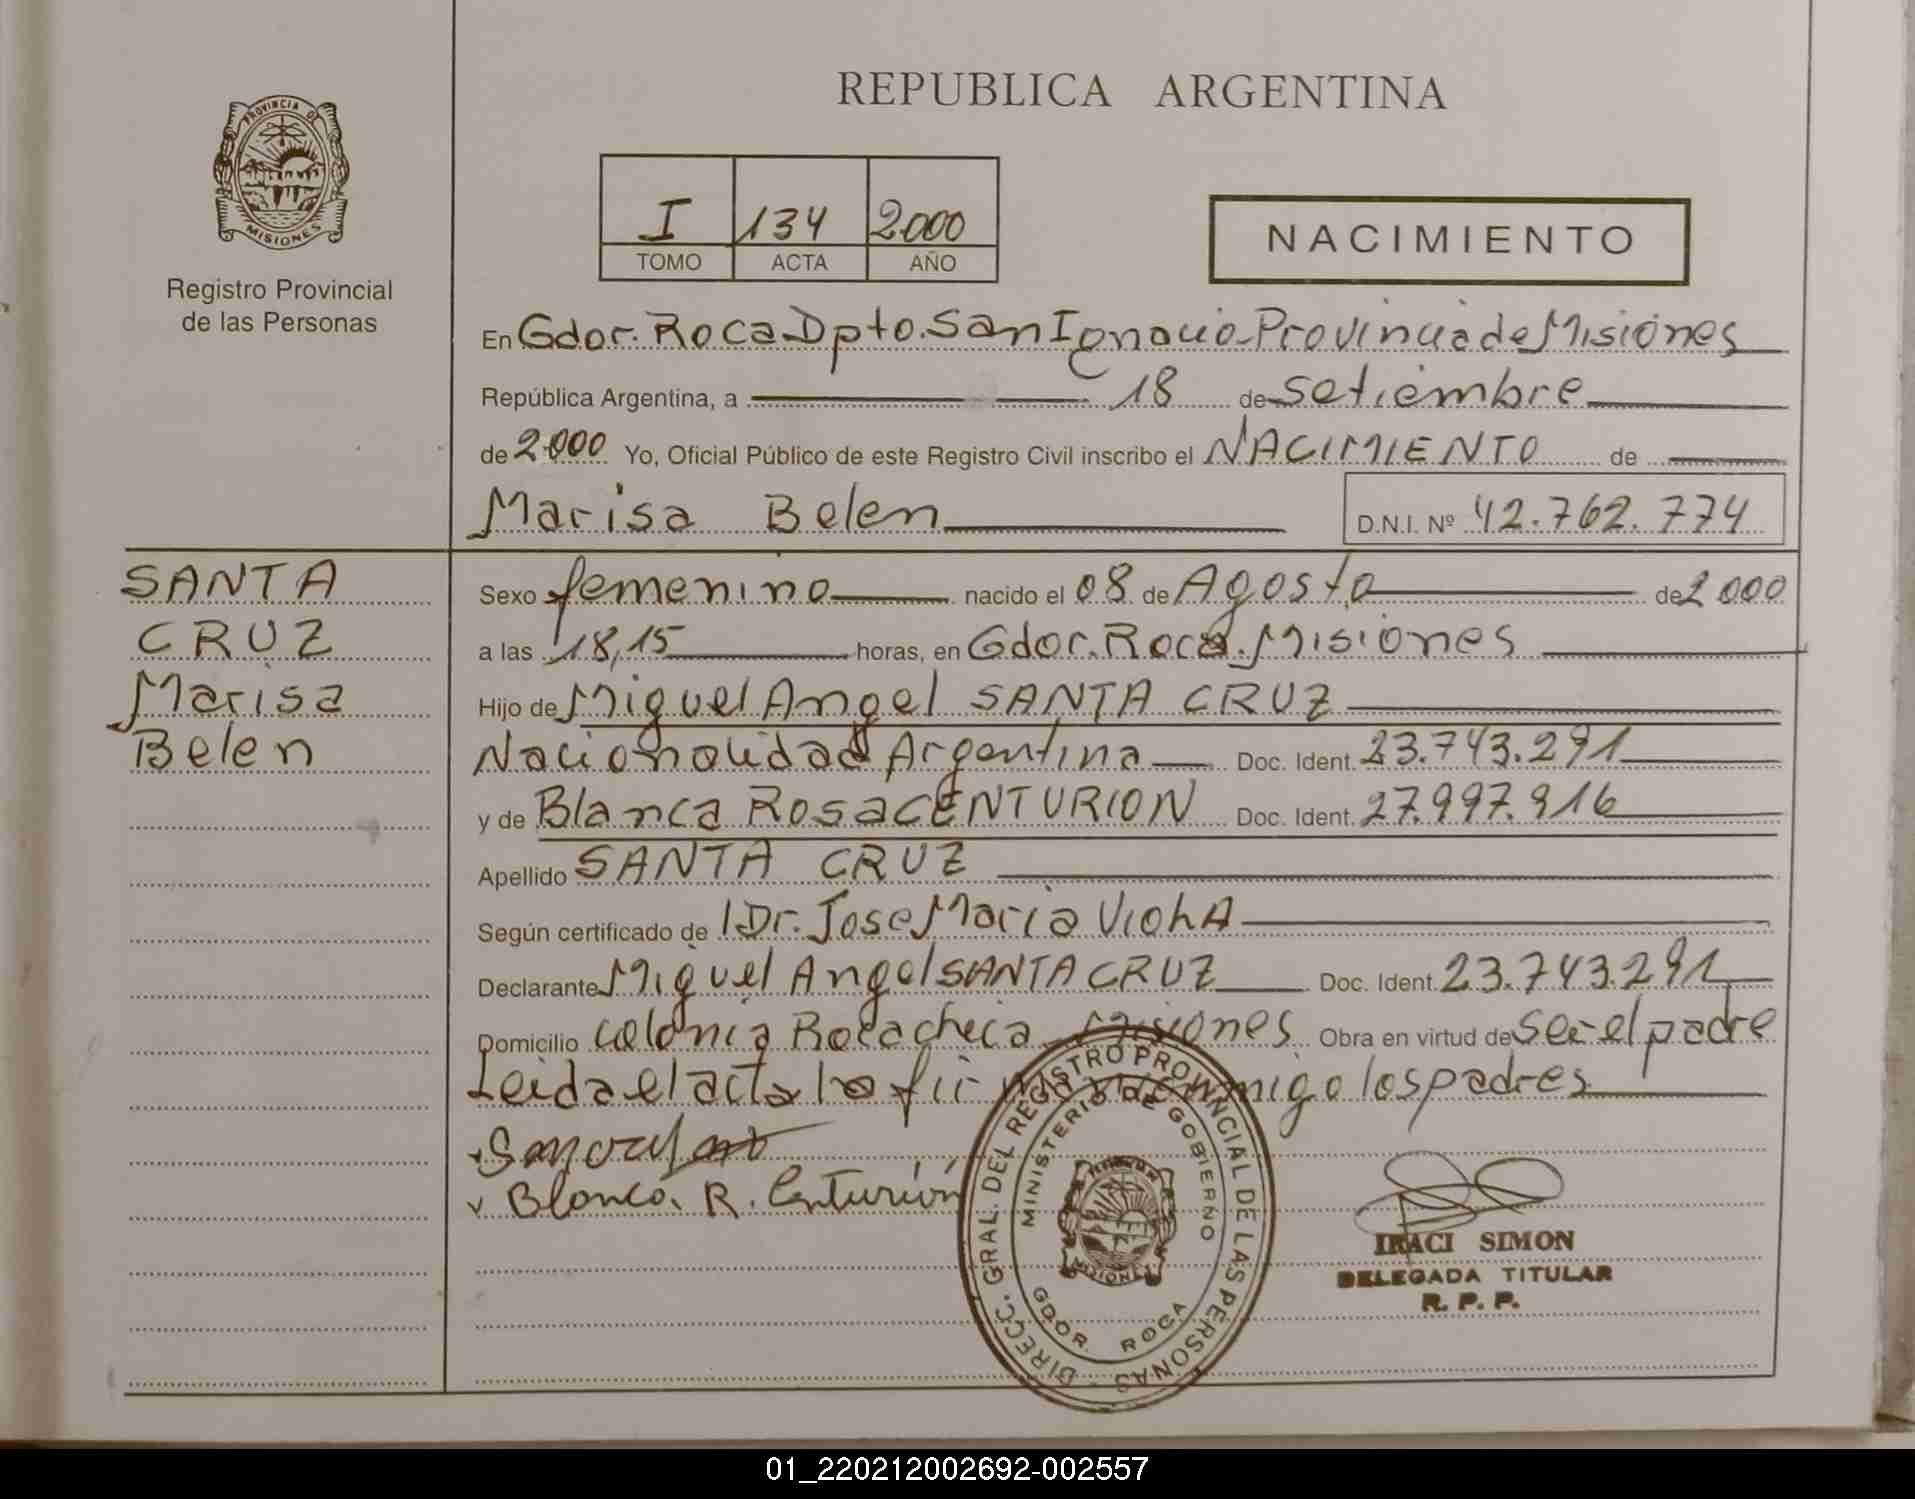 REPUBLICA ARGENTINA
PROVINCIA DE
MISIONES
Registro Provincial
de las Personas
I 134 2000
TOMO ACTA AÑO
NACIMIENTO
En Gdor. Roca Dpto. San Ignacio - Provincia de Misiones
República Argentina, a 18 de Setiembre
de 2.000 Yo, Oficial Público de este Registro Civil inscribo el NACIMIENTO de
Marisa Belen D.N.I. Nº 42.762.774
SANTA
CRUZ
Marisa
Belen
Sexo femenino nacido el 08 de Agosto de 2000
a las 18,15 horas, en Gdor. Roca. Misiones
Hijo de Miguel Angel SANTA CRUZ
Nacionalidad Argentina Doc. Ident. 23.743.291
y de Blanca Rosa CENTURION Doc. Ident. 27.997.916
Apellido SANTA CRUZ
Según certificado de Dr. Jose Maria
Declarante Miguel Angel SANTA CRUZ Doc. Ident. 23.743.291
Domicilio Colonia Misiones Obra en virtud de Ser el padre
Leida el acta la conmigo los padres
Blanca. R. Centurión
DIRECC. GRAL. DEL REGISTRO PROVINCIAL DE LAS PERSONAS
MINISTERIO DE GOBIERNO
MISIONES
GDOR. ROCA
IRACI SIMON
DELEGADA TITULAR
R. P. P.
01_220212002692-002557